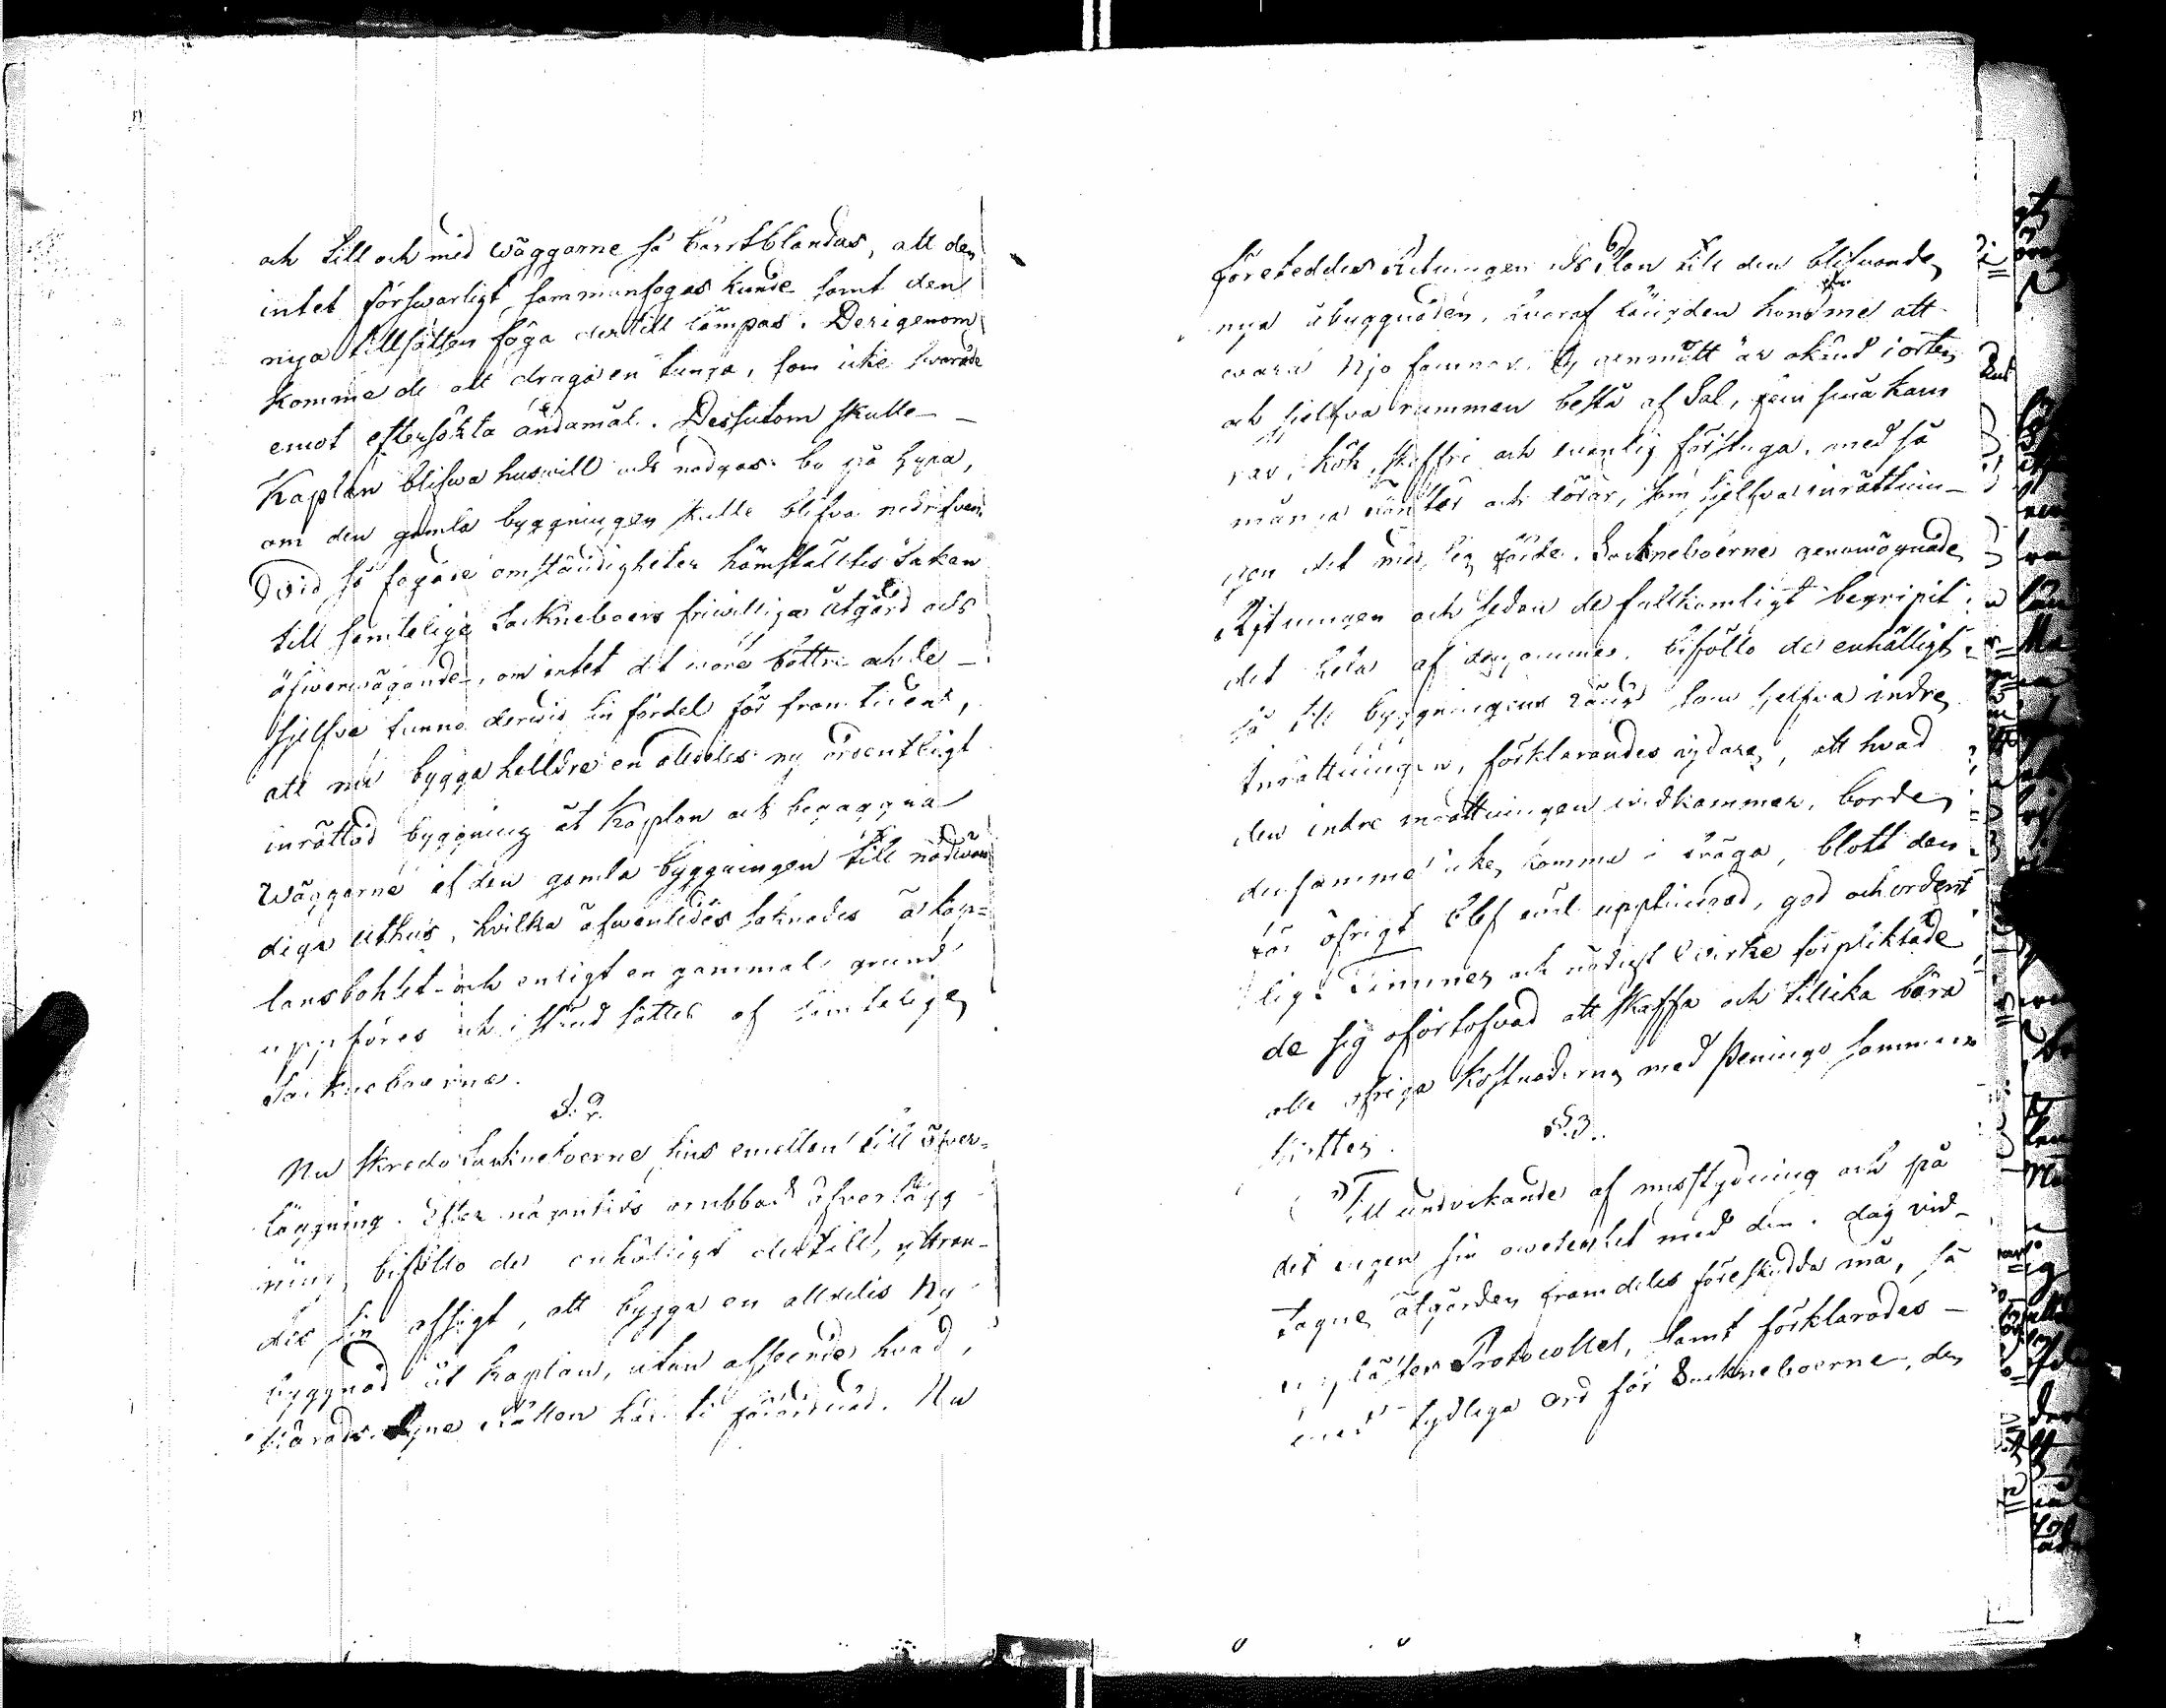 och till och med wäggarne så bortblandas, att den
intet förswarligt sammanfogas kunde samt den
nya tillsatsen föga dertill lämpas. Derigenom
komme de att draga en tunga, som icke swarade
emot eftersökta ändamål. Dessutom skulle
Kaplan blifwa huswill och nödgas bo på hyra,
om den gamla byggningen skulle blifva nedrifven.
Wid så fogade omständigheter hämställtes saken
till semtelige Sockneboers friwilliga åtgärd och
öfwerwägande, om intet det wore bättre och de
sjelfve funno derwid sin fördel för framtiden,
att nu bygga helldre en alldeles ny ordentligt
inrättad byggning åt Kaplan och begagna
Wäggarne af den gamla byggningen till nödwän
diga uthus, hvilka äfwenledes saknades å kap=
lansbohlet och enligt en gammal grund
uppföres och i stånd sättes af semtelige
Sockneboerne.
§. 2.
Nu skredo Sockneboerne sins emellan till öfver=
läggning. Efter någontids orubbad öfverlägg
ning, biföllo de enhälligt dertill, yttran-
des sin afsigt, att bygga en alldeles Ny
byggnad åt Kaplan, utan afseende hvad
Härads Syne Rätten här ti förordnad. Nu
företeddes Ritningen och Plan till den blifvande
nya åbyggnaden, hvaraf längden komme att
wara Njo famnar, Ty aenmått är okänd i orten
och sjelfva rummen bestå af Sal, fem små kam
rar, kök, skafferi och wanlig förstuga, med så
många fönster och dörar, som sjelfva inrättnin-
gen det med sig förde. Sockneboerne genomögnade
Ritningen och sedan de fullkomligt begripit
det hela af densamma, biföllo de enhälligt
så till byggningens längd som sjelfva indre
Inrättningen, förklarandes tydare, att hvad
den indre inrättningen widkommer, borde
densamma icke komma i fråga, blott den
för öfrigt blef wäl upptimrad, god och ordent
lig. Timmer och nödigt Virke förpliktade
de sig oförtöfvad att skaffa och tillika bära
alla öfriga kostnaderne med Penninge sammans
kotter.
§. 3.
Till undvikande af misstydning och på
det ingen sin owetenhet med den i dag vid-
tagne åtgärden framdeles föreskydda må, så
upplästes Protocollet, samt förklarades
med tydliga ord för Sockneboerne, den